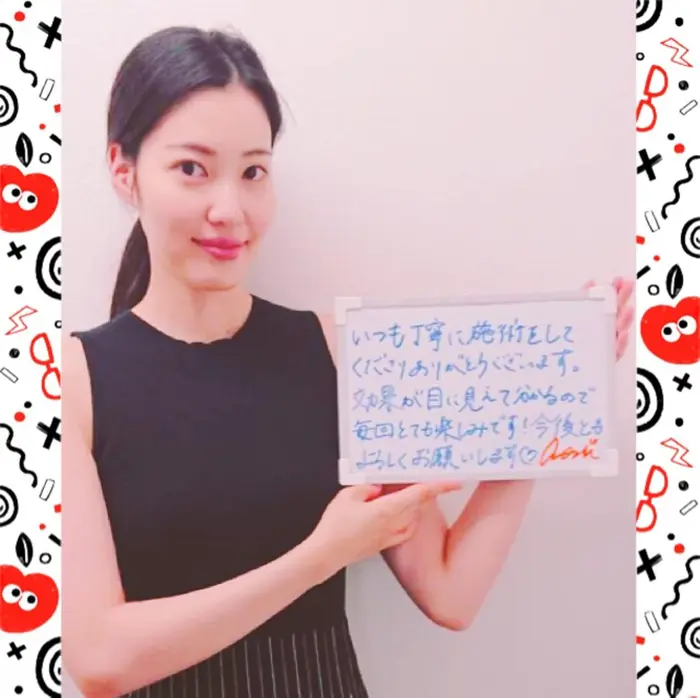 いつも丁寧に施術をして
くださりありがとうございます。
効果が目に見えて分かるので
毎回とても楽しみです!今後とも
よろしくお願いします♡